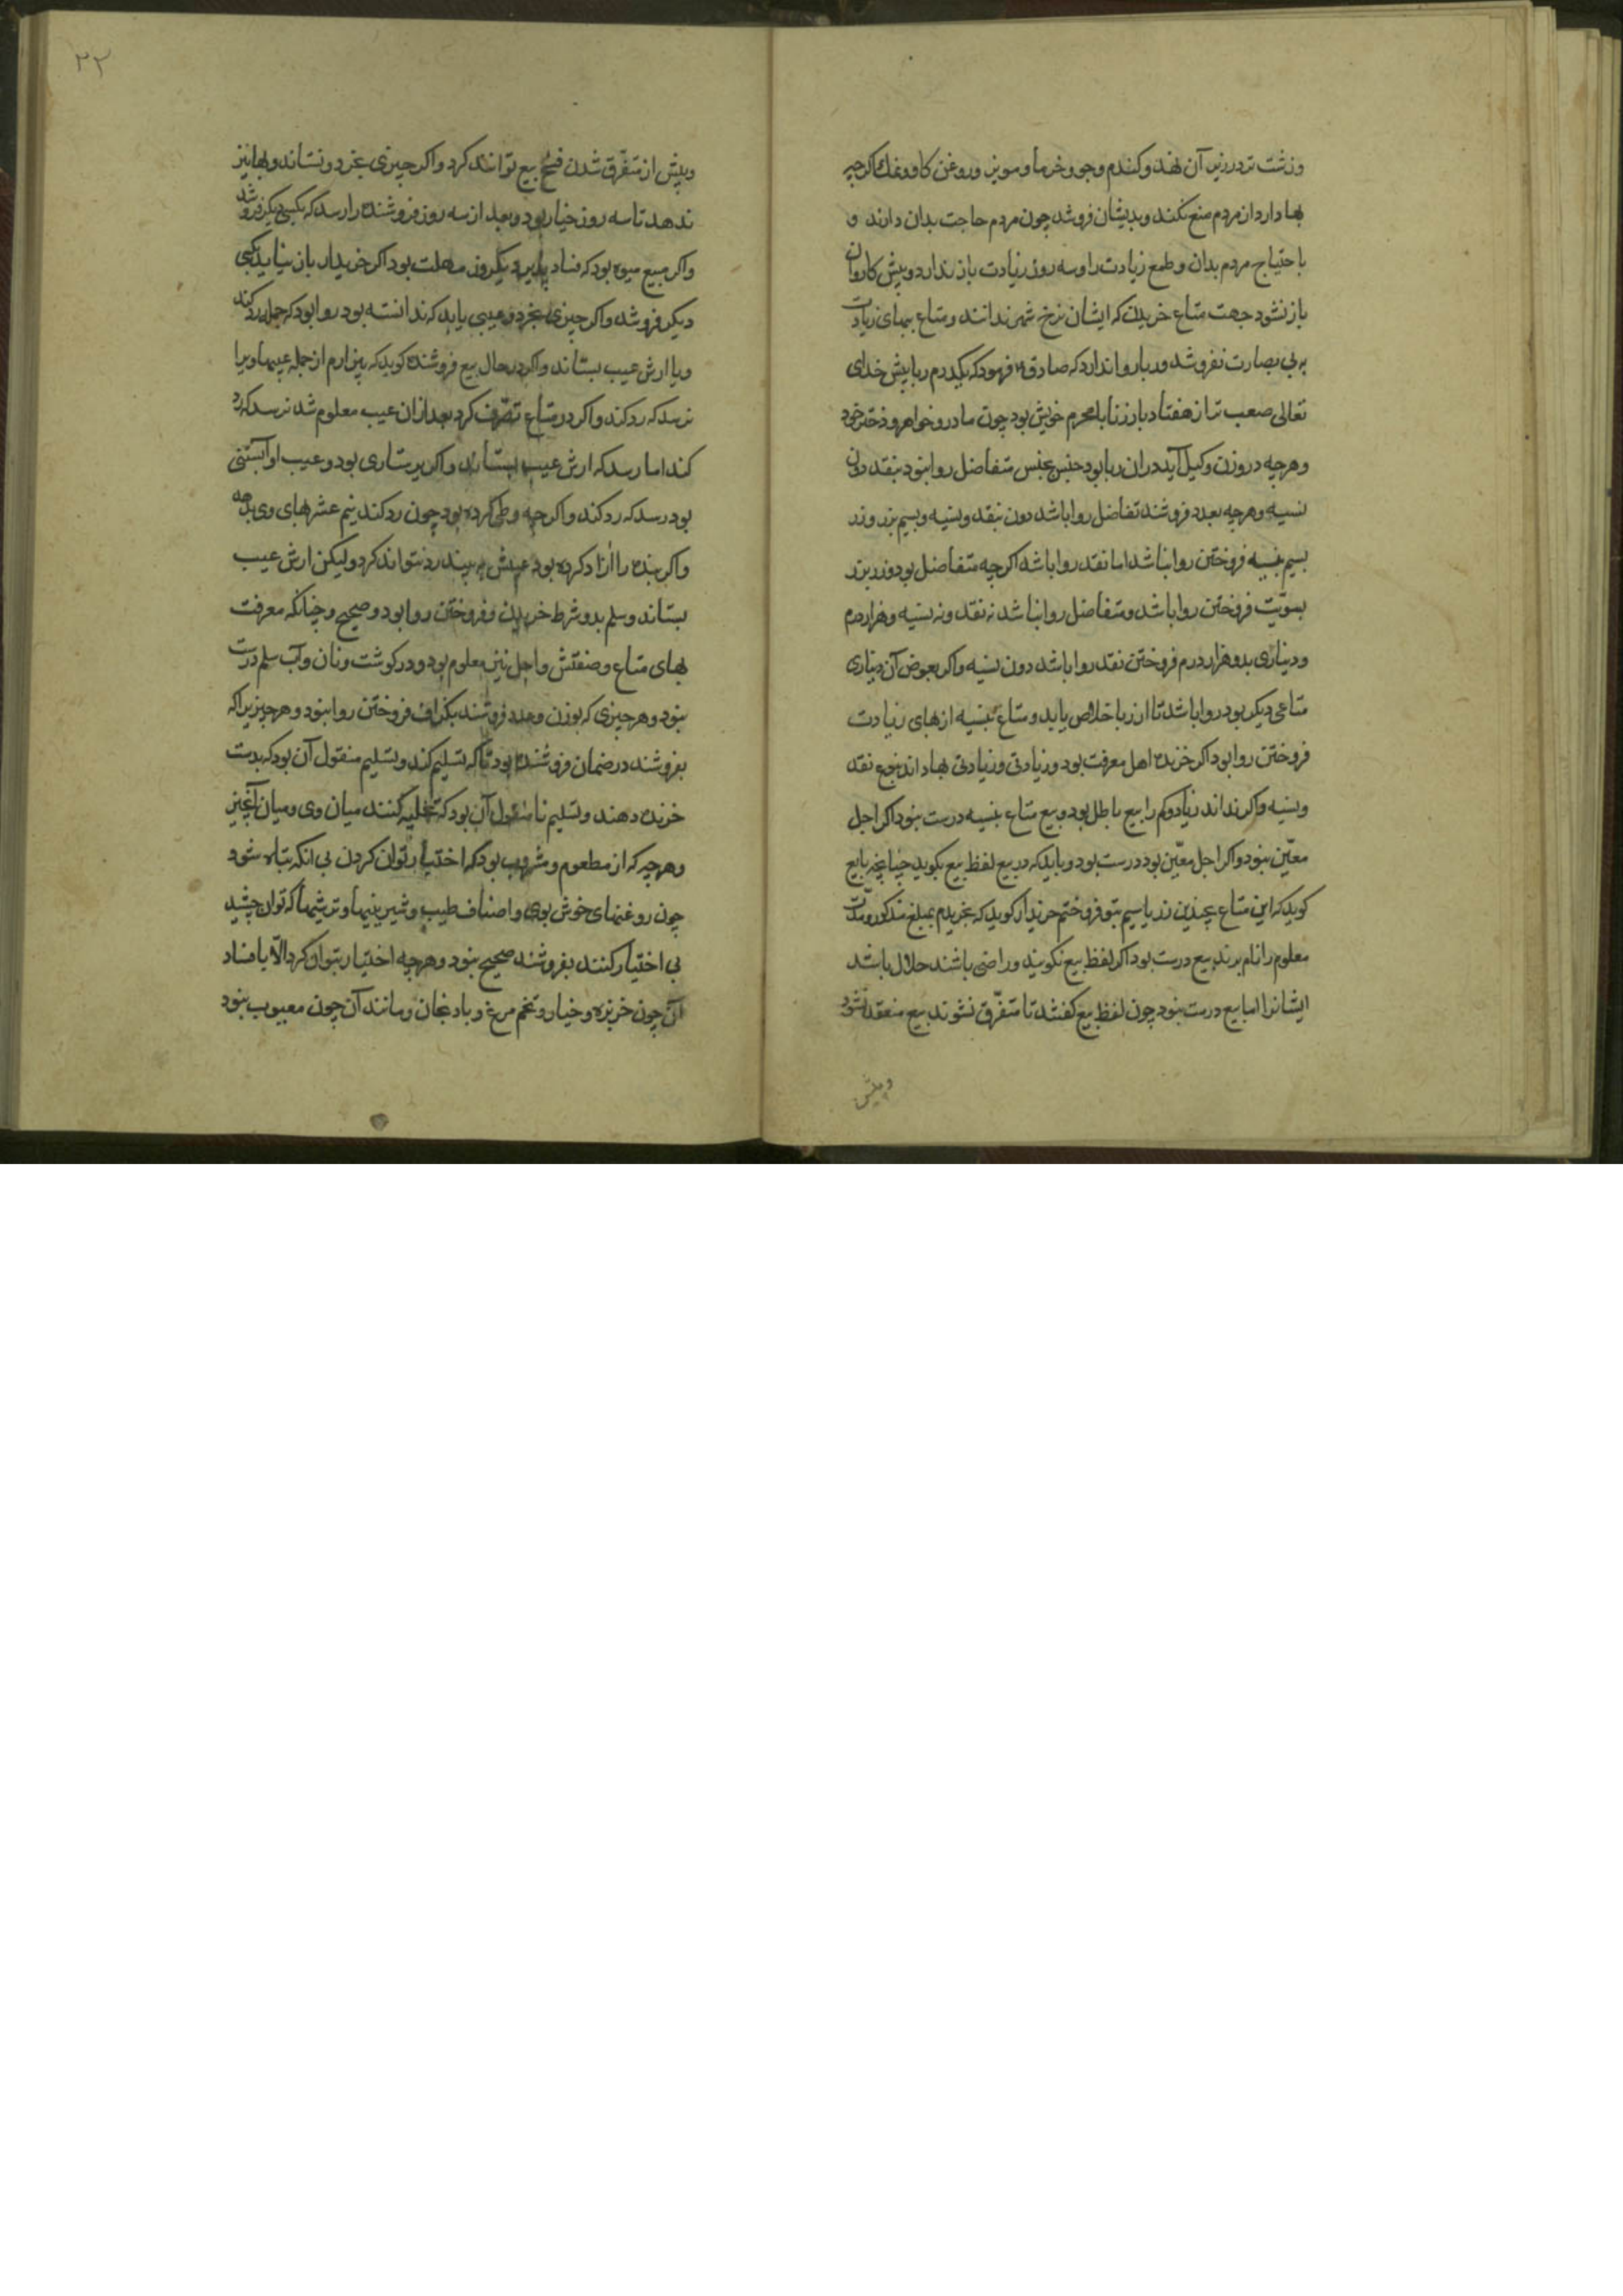 وزشت تر در زیر آن نهند وکندم وجو وخرما ومویز وروغن کاو ونمک اکرچه
بها دارد از مردم منع نکند وبدیشان فروشد چون مردم حاجت بدان دارند و
باحتیاج مردم بدان وطمع زیادت را وسه روز زیادت باز ندارد وپیش کاروان
باز نشود جهت متاع خریدن که ایشان نرخ شهر ندانند ومتاع ببهای زیادت
به بی بصارت نفروشد وربا روا ندارد که صادق فرمود که یکدرم ربا پیش خدای
تعالی صعب تر از هفتاد بار زنا با محرم خویش بود چون مادر وخواهر ودختر خود
وهرچه در وزن وکیل آید دران ربا بود جنس بجنس متفاضل روا نبود بنقد دون
نسیه وهرچه بعدد فروشند تفاضل روا باشد دون بنقد ونسیه وسیم بزر وزر
بسیم بنسیه فروختن روا نباشد اما نقد روا باشد اکرچه متفاضل بود وزر بزر
بسویّت فروختن روا باشد ومتفاضل روا نباشد نه نقد ونه نسیه وهزار درم
ودیناری بدو هزار درم فروختن نقد روا باشد دون نسیه واکر بعوض آن دیناری
متاعی دیکر بود روا باشد تا از ربا خلاص یابد ومتاع بنسیه از بهای زیادت
فروختن روا بود اکر خرنده اهل معرفت بود وزیادتی وزیادتی بها داند نقد
ونسیه واکر نداند زیاد وکم را بیع باطل بود وبیع متاع بنسیه درست نبود اکر اجل
معیّن نبود واکر اجل معیّن بود درست بود وباید که در بیع لفظ بیع بکوید چنانچه بایع
کوید که این متاع بچندین زر یا سیم بتو فروختم خریدار کوید که بخریدم بمبلغ مذکور ومدّت
معلوم را نام برند بیع درست بود اکر لفظ بیع نکویند وراضی باشند حلال باشد
ایشانرا اما بیع درست نبود چون لفظ بیع کفتند تا متفرّق نشوند بیع منعقد نشود
وپیش
٢٢
وپیش از متفرّق شدن فسخ بیع توانند کرد واکر چیزی بخرد ونستاند وبها نیز
ندهد تا سه روز خیار بود وبعد از سه روز فروشنده را رسد که بکسی دیکر فروشد
واکر مبیع میوه بود که فساد پذیرد یکروز مهلت بود اکر خریدار باز نیاید بکسی
دیکر فروشد واکر چیزی بخرد وعیبی یابد که ندانسته بود روا بود که جمله رد کند
ویا ارش عیب بستاند واکر در حال بیع فروشنده کوید که بیزارم از جمله عیبها ویرا
نرسد که رد کند واکر در متاع تصرّف کرد بعد ازان عیب معلوم شد نرسد که رد
کند اما رسد که ارش عیب بستاند واکر پرستاری بود وعیب او آبستنی
بود رسد که رد کند واکر چه وطی کرده بود چون رد کند نیم عشر بهای وی بدهد
واکر بنده را آزاد کرده بود عیبش به بیند رد نتواند کرد ولیکن ارش عیب
بستاند وسلم بدو شرط خریدن وفروختن روا بود وصحیح وچنانکه معرفت
بهای متاع وصفتش واجل نیز معلوم بود ودر کوشت ونان وآب سلم درست
نبود وهر چیزی که بوزن وعدد فروشند بکزاف فروختن روا نبود وهر چیز یرا که
بفروشند در ضمان فروشنده بود تاکه تسلیم کند وتسلیم منقول آن بود که بدست
خرنده دهند وتسلیم نا منقول آن بود که تخلیه کنند میان وی ومیان آنچیز
وهرچه که از مطعوم ومشروب بود که اختیار توان کردن بی انکه تباه شود
چون روغنهای خوش بوی واصناف طیب وشیرینیها وترشیها که توان چشید
بی اختیار کنند بفروشند صحیح نبود وهرچه اختیار نتوان کرد الّا با فساد
آن چون خربزه وخیار وتخم مرغ وبادنجان ومانند آن چون معیوب نبود